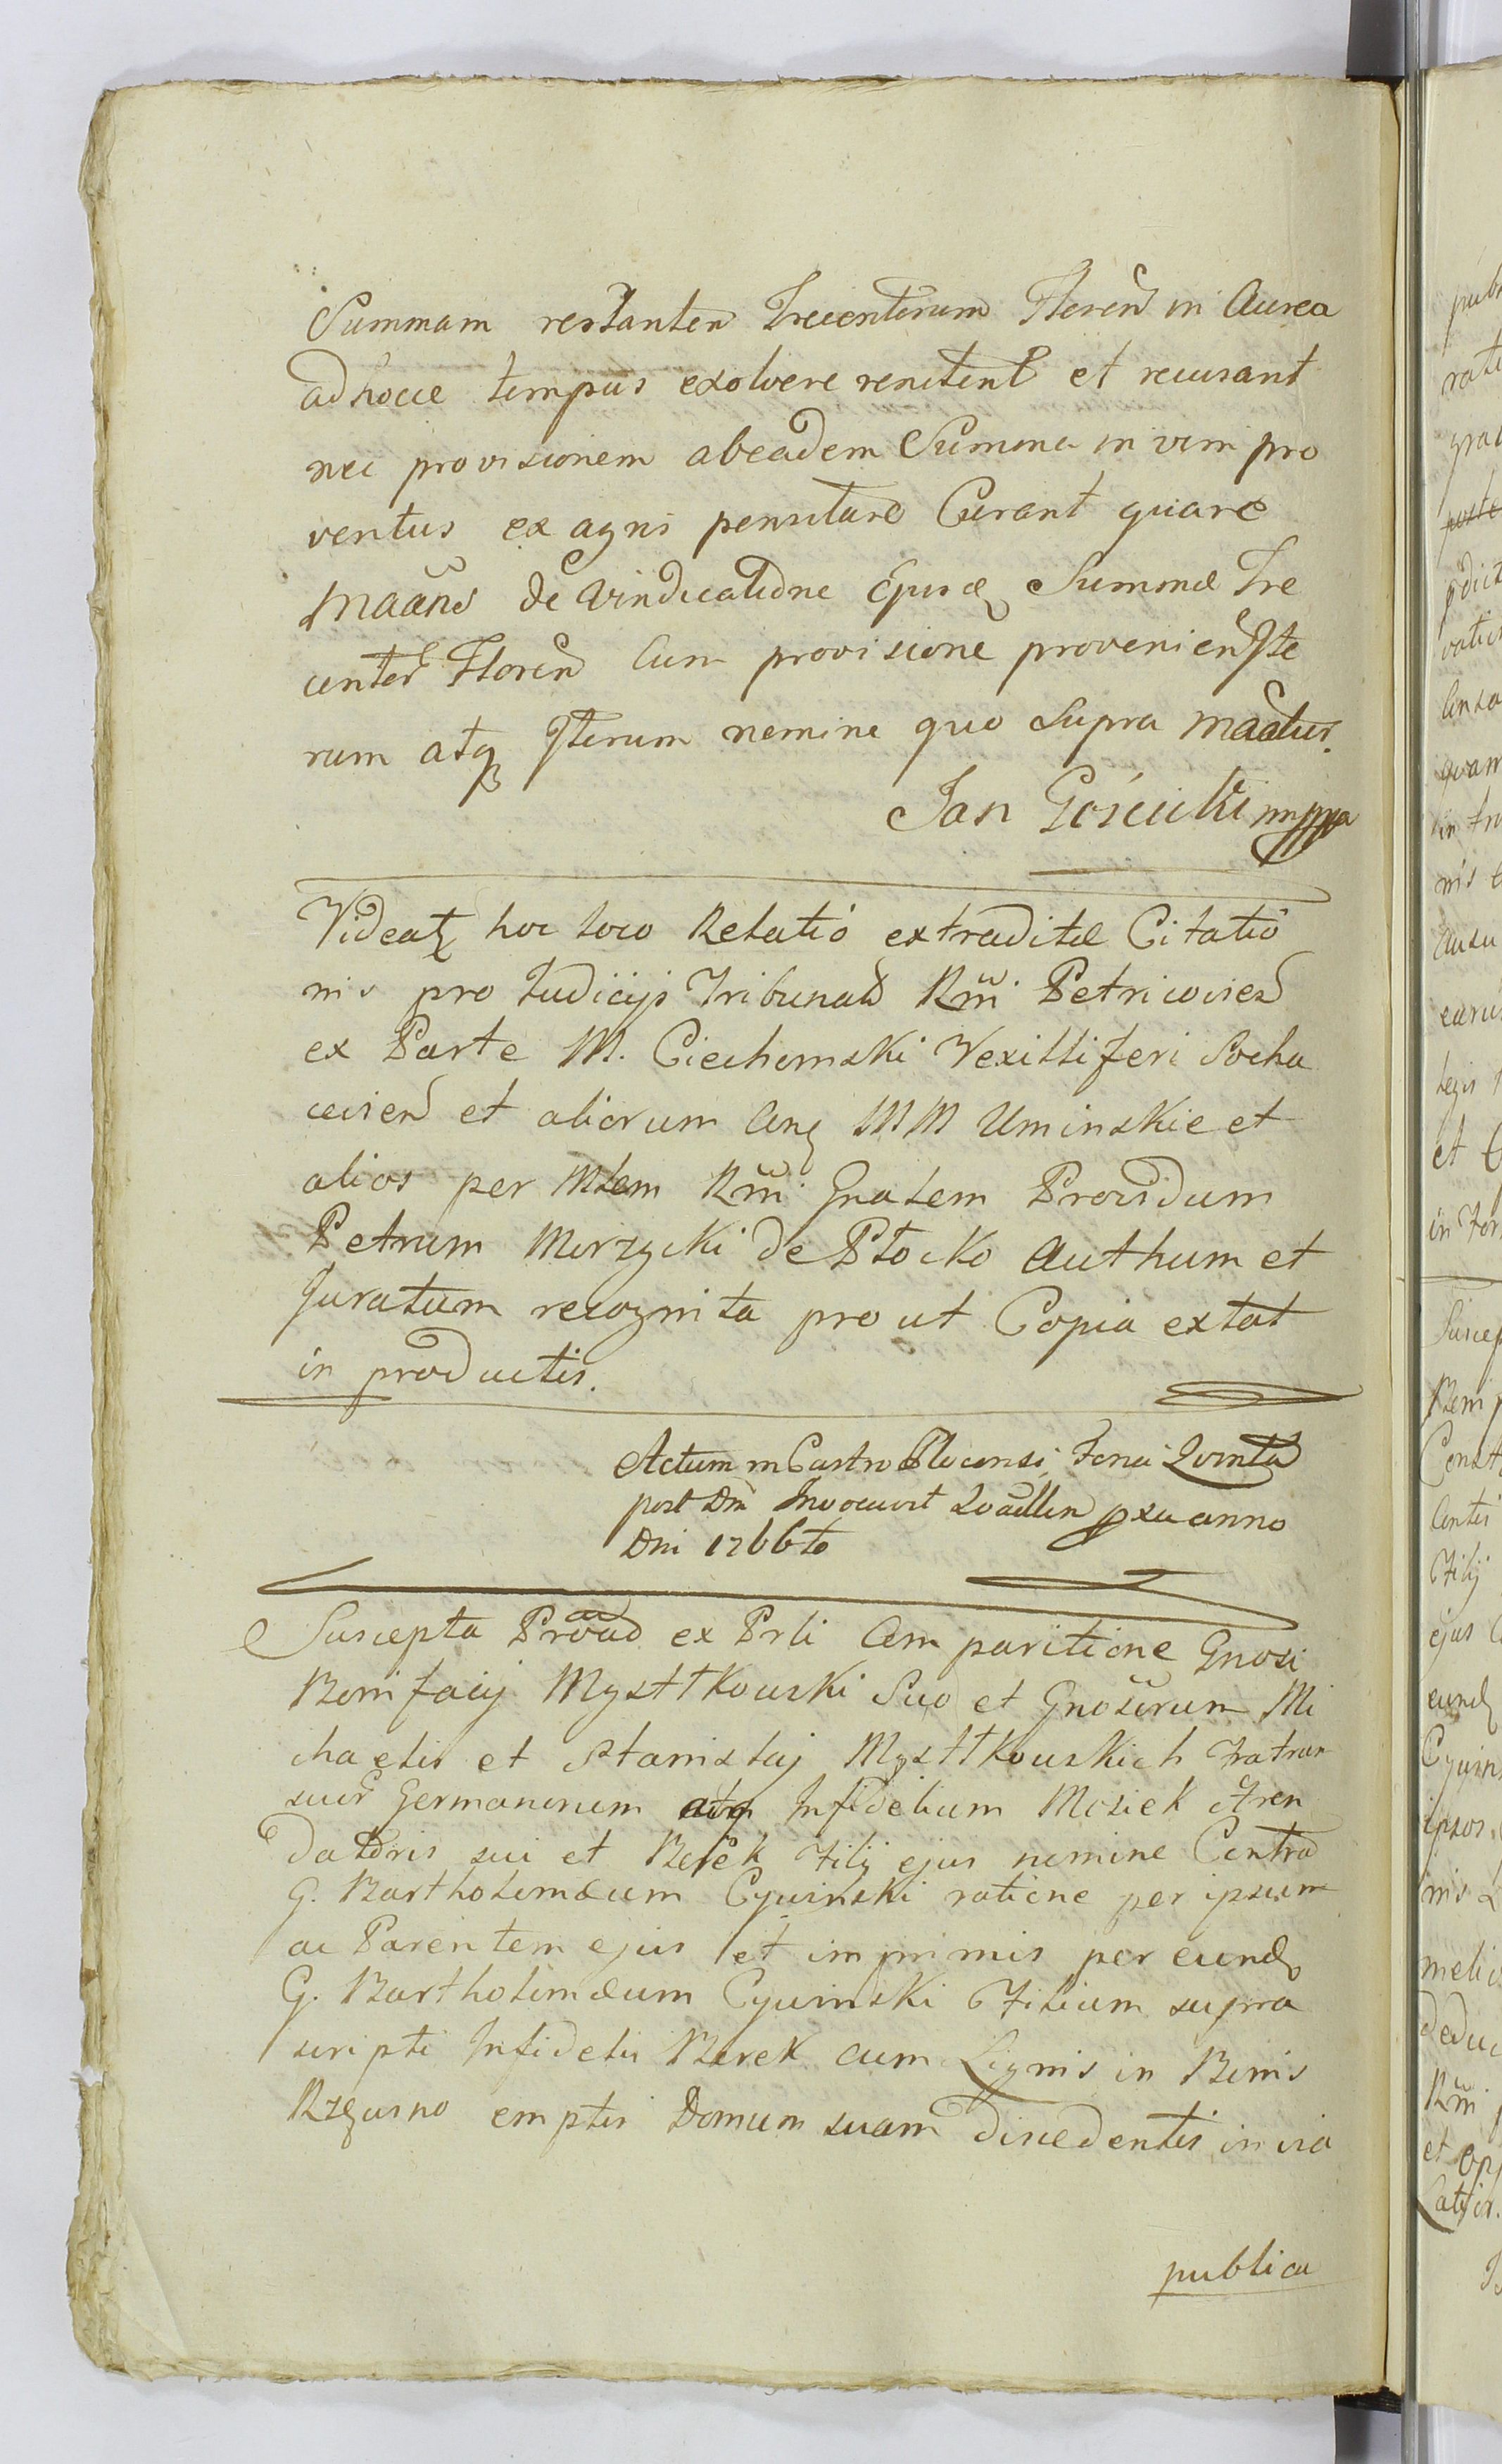 Summam restantem Trecentorum Floren in Aurea
adhocce tempus exolvere renitent et recusant
nec provisionem abeadem Summa in vim pro
ventus ex agris pensitare Curant quare
Maãns de vindicatione Ejusd Summæ Tre
center Floren Cum provisione provenien Ite
rum atq Iterum nomine quo supra Maãtur.
Jan Gościcki mppa
Videatz hoc loco Relatio extraditæ Citatio
nis pro Judicijs Tribunals Rni Petricovien
ex Parte M. Ciechomski Vexilliferi Socha
cevien et aliorum Cng MM Uminskie et
alios per Mlem Rni Gnalem Providum
Petrum Morzycki de Płocko Authum et
Juratum recognita pro ut Copia extat
in productis.
Actum in Castro Plocensi Feria Quinta
post Dni Invocavit Quãdlen pxa anno
Dni 1766to
Suscepta Proãd ex Prli Com paritione Gnosi
Bonifacij Mysttkowski Suo et Gnosorum Mi
chaelis et Stanislaj Mysttkowskich Fratrum
suor Germanorum atq Infidelium Mosiek Aren
datoris sui et Berek Filij ejus nomine Contra
G. Bartholomæum Cywinski ratione per ipsum
ac Parentem ejus et imprimis per eund
G. Bartholomæum Cywinski Filium supra
scripti Infidelis Berek cum Lignis in Bonis
emptis Domum suam discedentis in via
publica